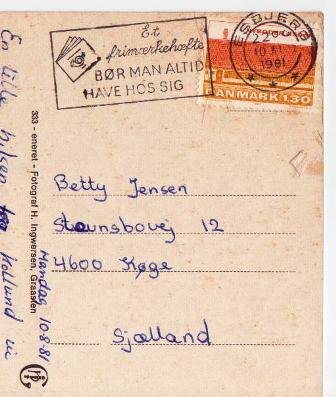 Et
frimærkehæfte
BØR MAN ALTID
HAVE HOS SIG
ESBJERG
10.8.
1981
DANMARK 130
En lille hilsen fra Jollund in
Mandag 10-8-81
333 - eneret - Fotograf H. Ingwersen, Graasten
Betty Jensen
Stevnsbovej 12
4600 Køge
Sjælland